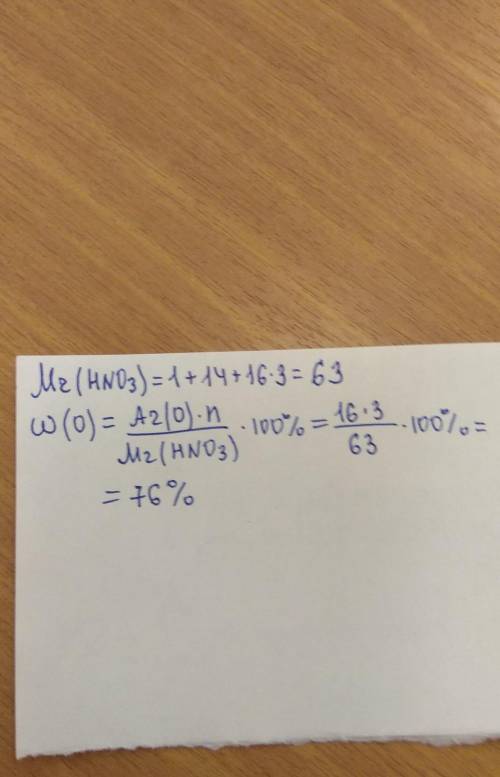 Mr(HNO3)=1+14+16·3=63
ω(O)= Ar(O)·n / Mr(HNO3) ·100%= 16·3 / 63 ·100%=
=76%